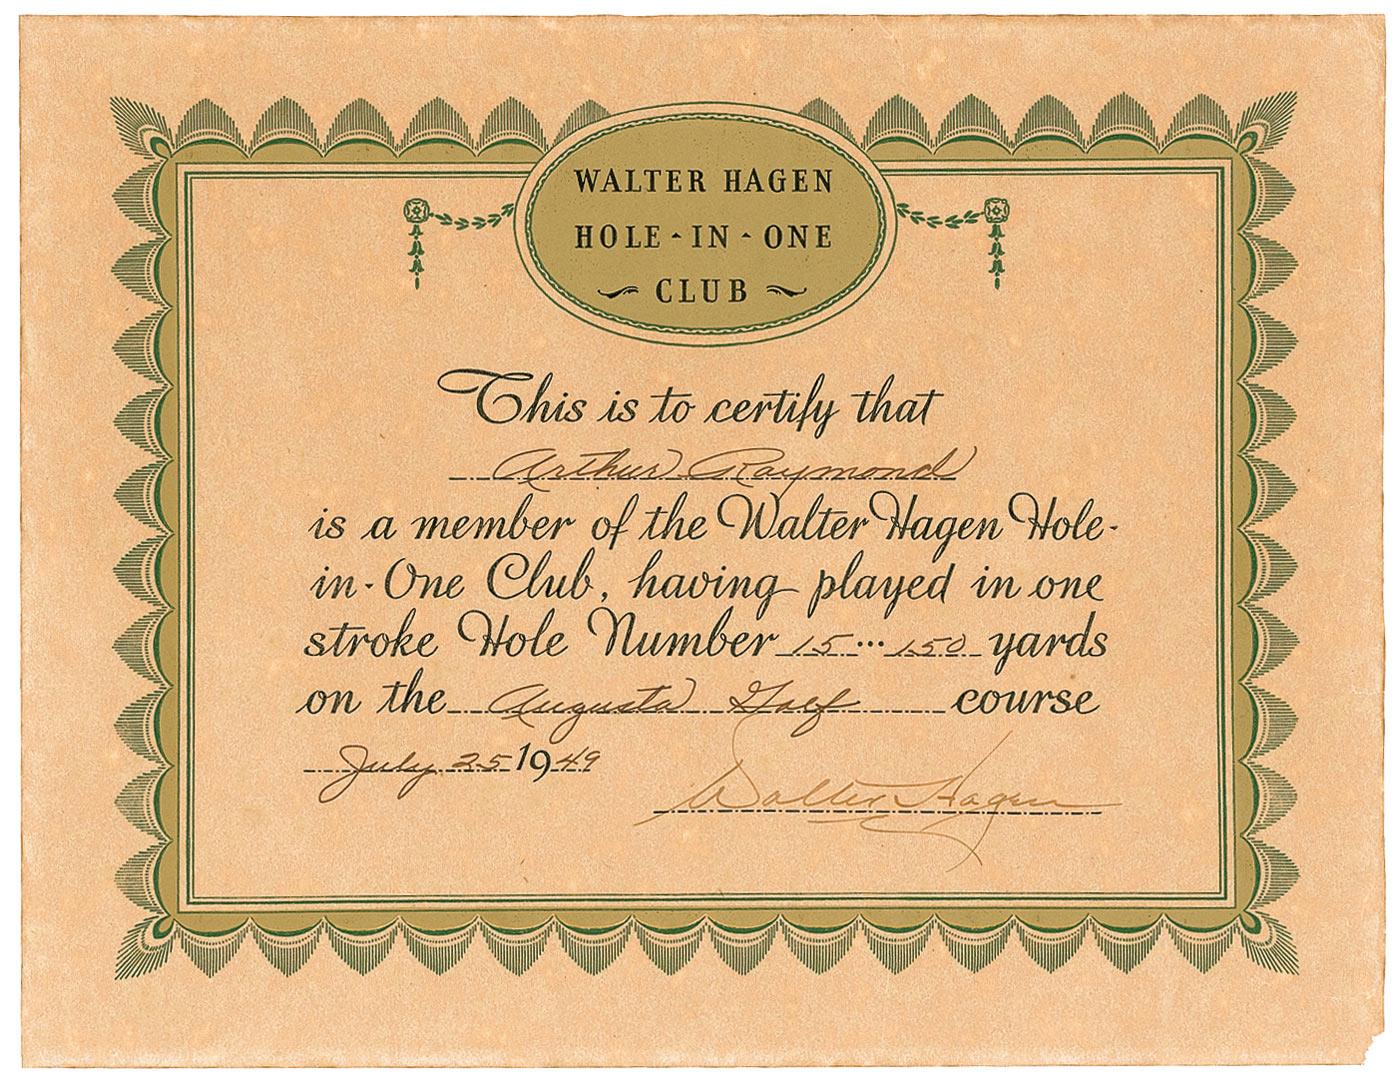 WALTER HAGEN
HOLE-IN-ONE
CLUB
This is to certify that
Arthur Raymond
is a member of the Walter Hagen Hole-
in-One Club, having played in one
stroke Hole Number 15...150 yards
on the Augusta Golf course
July 25 1949
Walter Hagen